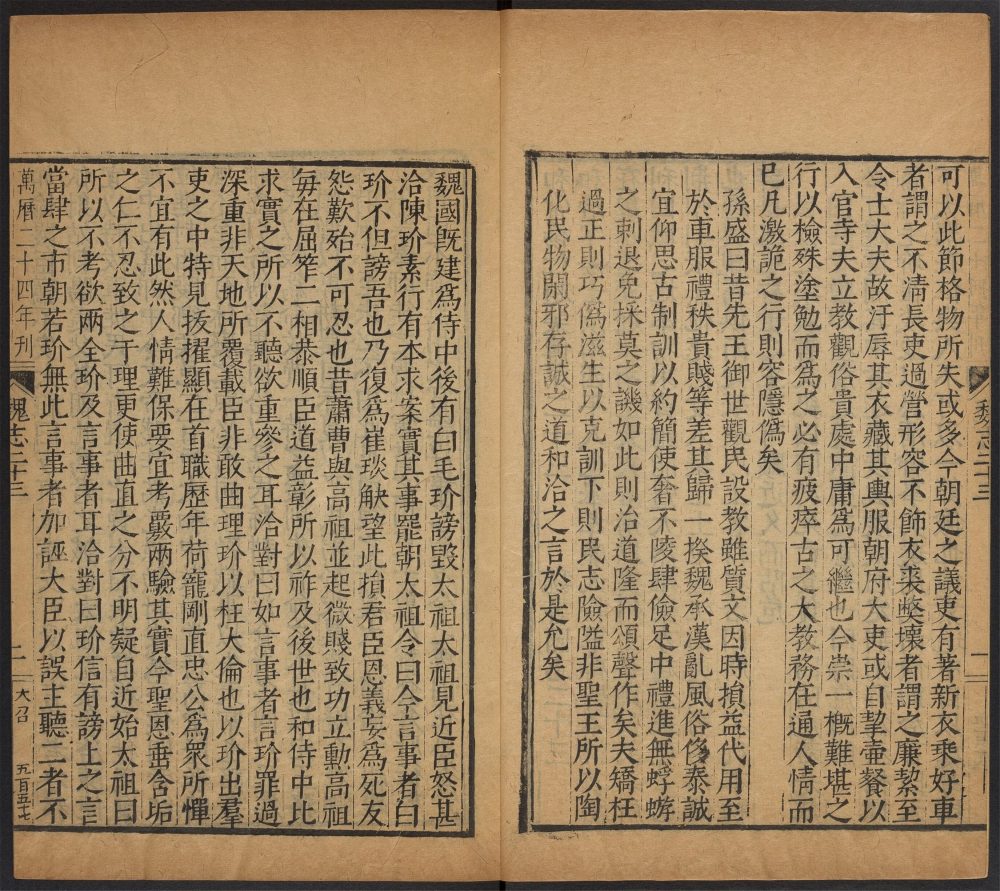 可以此節格物所失或多今朝廷之議吏有著新衣乘好車
者謂之不清長吏過營形容不飾衣裘獘壞者謂之廉絜至
令士大夫故汙辱其衣藏其輿服朝府大吏或自挈壷餐以
入官寺夫立教觀俗貴處中庸爲可繼也今崇一槪難堪之
行以檢殊塗勉而爲之必有疲瘁古之大教務在通人情而
巳凡激詭之行則容隱僞矣
孫盛曰昔先王御世觀民設教雖質文因時損益代用至
於車服禮秩貴賤等差其歸一揆魏承漢亂風俗侈泰誠
宜仰思古制訓以約簡使奢不陵肆儉足中禮進無蜉蝣
之刺退免採莫之譏如此則治道隆而頌聲作矣夫矯枉
過正則巧僞滋生以克訓下則民志險隘非聖王所以陶
化民物閑邪存誠之道和洽之言於是允矣
魏志二十三
一
魏國旣建爲侍中後有白毛玠謗毀太祖太祖見近臣怒甚
洽陳玠素行有本求案實其事罷朝太祖令曰今言事者白
玠不但謗吾也乃復爲崔琰觖望此損君臣恩義妄爲死友
怨歎殆不可忍也昔蕭曹與高祖並起微賤致功立勳高祖
每在屈笮二相恭順臣道益彰所以祚及後世也和侍中比
求實之所以不聽欲重參之耳洽對曰如言事者言玠罪過
深重非天地所覆載臣非敢曲理玠以枉大倫也以玠出羣
吏之中特見拔擢顯在首職歷年荷寵剛直忠公爲眾所憚
不宜有此然人情難保要宜考覈兩驗其實今聖恩垂含垢
之仁不忍致之于理更使曲直之分不明疑自近始太祖曰
所以不考欲兩全玠及言事者耳洽對曰玠信有謗上之言
當肆之市朝若玠無此言事者加誣大臣以誤主聽二者不
萬曆二十四年刊
魏志二十三
二
大召
五百五十七